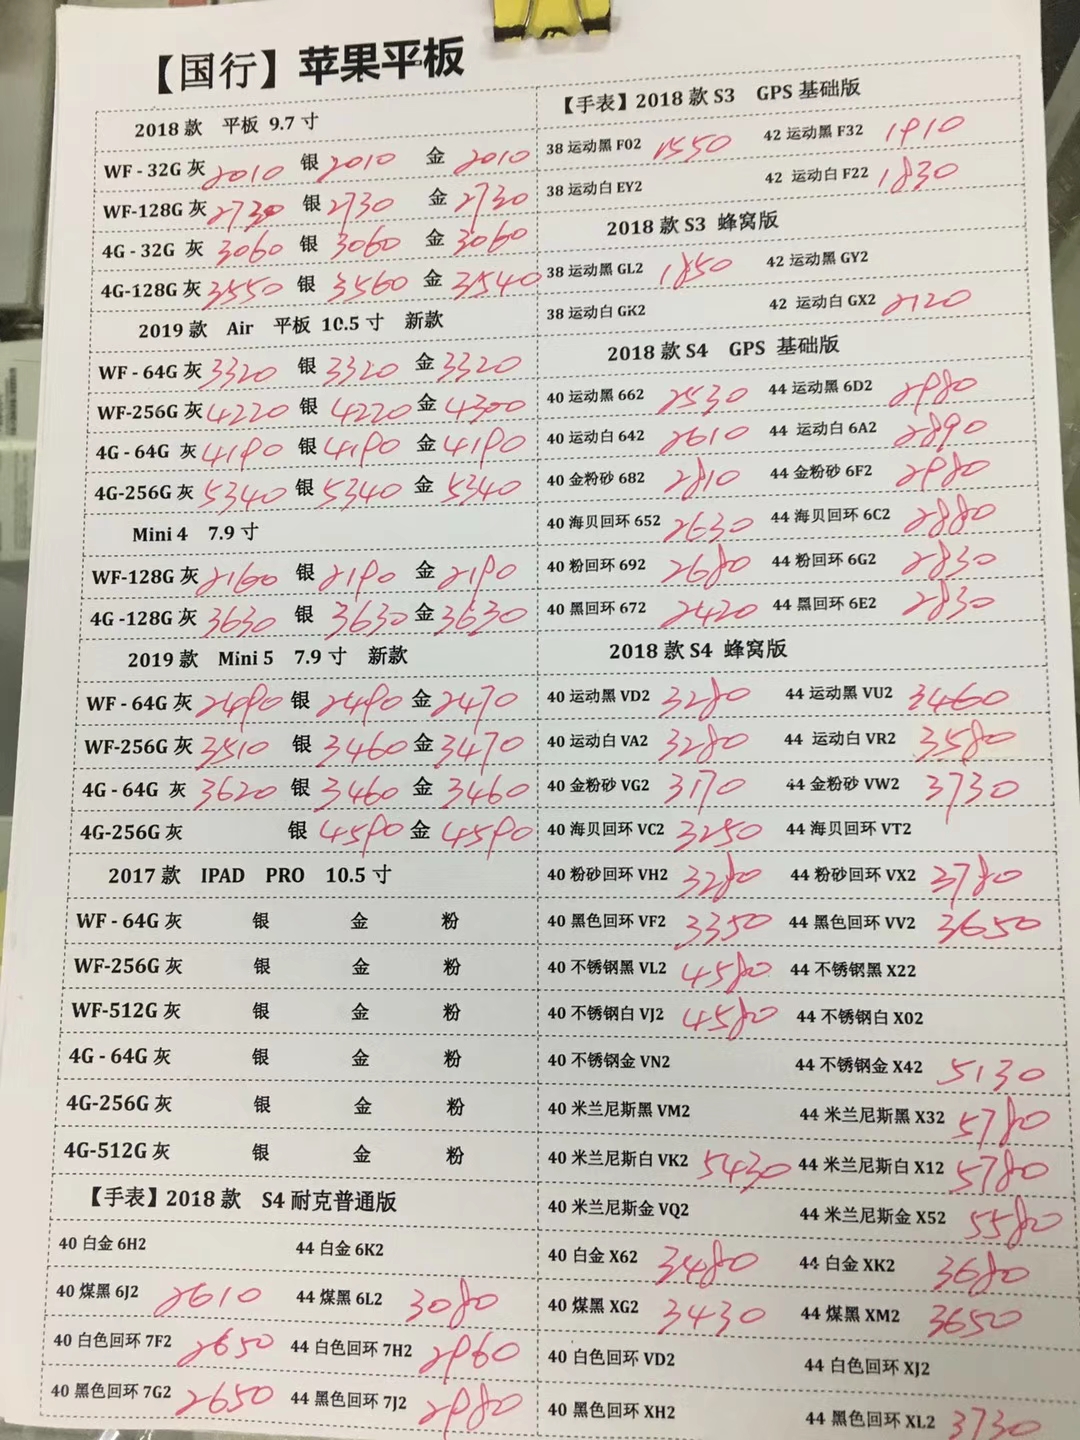 【国行】苹果平板
2018 款 平板 9.7 寸
WF - 32G 灰 2010 银 2010 金 2010
WF-128G 灰 2730 银 2730 金 2730
4G - 32G 灰 3060 银 3060 金 3060
4G-128G 灰 3550 银 3560 金 3540
2019 款 Air 平板 10.5 寸 新款
WF - 64G 灰 3320 银 3320 金 3320
WF-256G 灰 4220 银 4220 金 4300
4G - 64G 灰 4190 银 4190 金 4190
4G-256G 灰 5340 银 5340 金 5340
Mini 4 7.9 寸
WF-128G 灰 2160 银 2190 金 2190
4G -128G 灰 3630 银 3630 金 3630
2019 款 Mini 5 7.9 寸 新款
WF - 64G 灰 2490 银 2490 金 2470
WF-256G 灰 3510 银 3460 金 3470
4G - 64G 灰 3620 银 3460 金 3460
4G-256G 灰 银 4590 金 4590
2017 款 IPAD PRO 10.5 寸
WF - 64G 灰 银 金 粉
WF-256G 灰 银 金 粉
WF-512G 灰 银 金 粉
4G - 64G 灰 银 金 粉
4G-256G 灰 银 金 粉
4G-512G 灰 银 金 粉
【手表】2018 款 S4 耐克普通版
40 白金 6H2 44 白金 6K2
40 煤黑 6J2 2610 44 煤黑 6L2 3080
40 白色回环 7F2 2650 44 白色回环 7H2 2960
40 黑色回环 7G2 2650 44 黑色回环 7J2 2980
【手表】2018 款 S3 GPS 基础版
38 运动黑 F02 1550 42 运动黑 F32 1910
38 运动白 EY2 42 运动白 F22 1830
2018 款 S3 蜂窝版
38 运动黑 GL2 1850 42 运动黑 GY2
38 运动白 GK2 42 运动白 GX2 2120
2018 款 S4 GPS 基础版
40 运动黑 662 2530 44 运动黑 6D2 2980
40 运动白 642 2610 44 运动白 6A2 2890
40 金粉砂 682 2810 44 金粉砂 6F2 2980
40 海贝回环 652 2630 44 海贝回环 6C2 2880
40 粉回环 692 2680 44 粉回环 6G2 2830
40 黑回环 672 2420 44 黑回环 6E2 2830
2018 款 S4 蜂窝版
40 运动黑 VD2 3280 44 运动黑 VU2 3460
40 运动白 VA2 3280 44 运动白 VR2 3580
40 金粉砂 VG2 3170 44 金粉砂 VW2 3730
40 海贝回环 VC2 3250 44 海贝回环 VT2
40 粉砂回环 VH2 3280 44 粉砂回环 VX2 3780
40 黑色回环 VF2 3350 44 黑色回环 VV2 3650
40 不锈钢黑 VL2 4580 44 不锈钢黑 X22
40 不锈钢白 VJ2 4580 44 不锈钢白 X02
40 不锈钢金 VN2 44 不锈钢金 X42 5130
40 米兰尼斯黑 VM2 44 米兰尼斯黑 X32 5780
40 米兰尼斯白 VK2 5430 44 米兰尼斯白 X12 5780
40 米兰尼斯金 VQ2 44 米兰尼斯金 X52 5580
40 白金 X62 3480 44 白金 XK2 3680
40 煤黑 XG2 3430 44 煤黑 XM2 3650
40 白色回环 VD2 44 白色回环 XJ2
40 黑色回环 XH2 44 黑色回环 XL2 3730